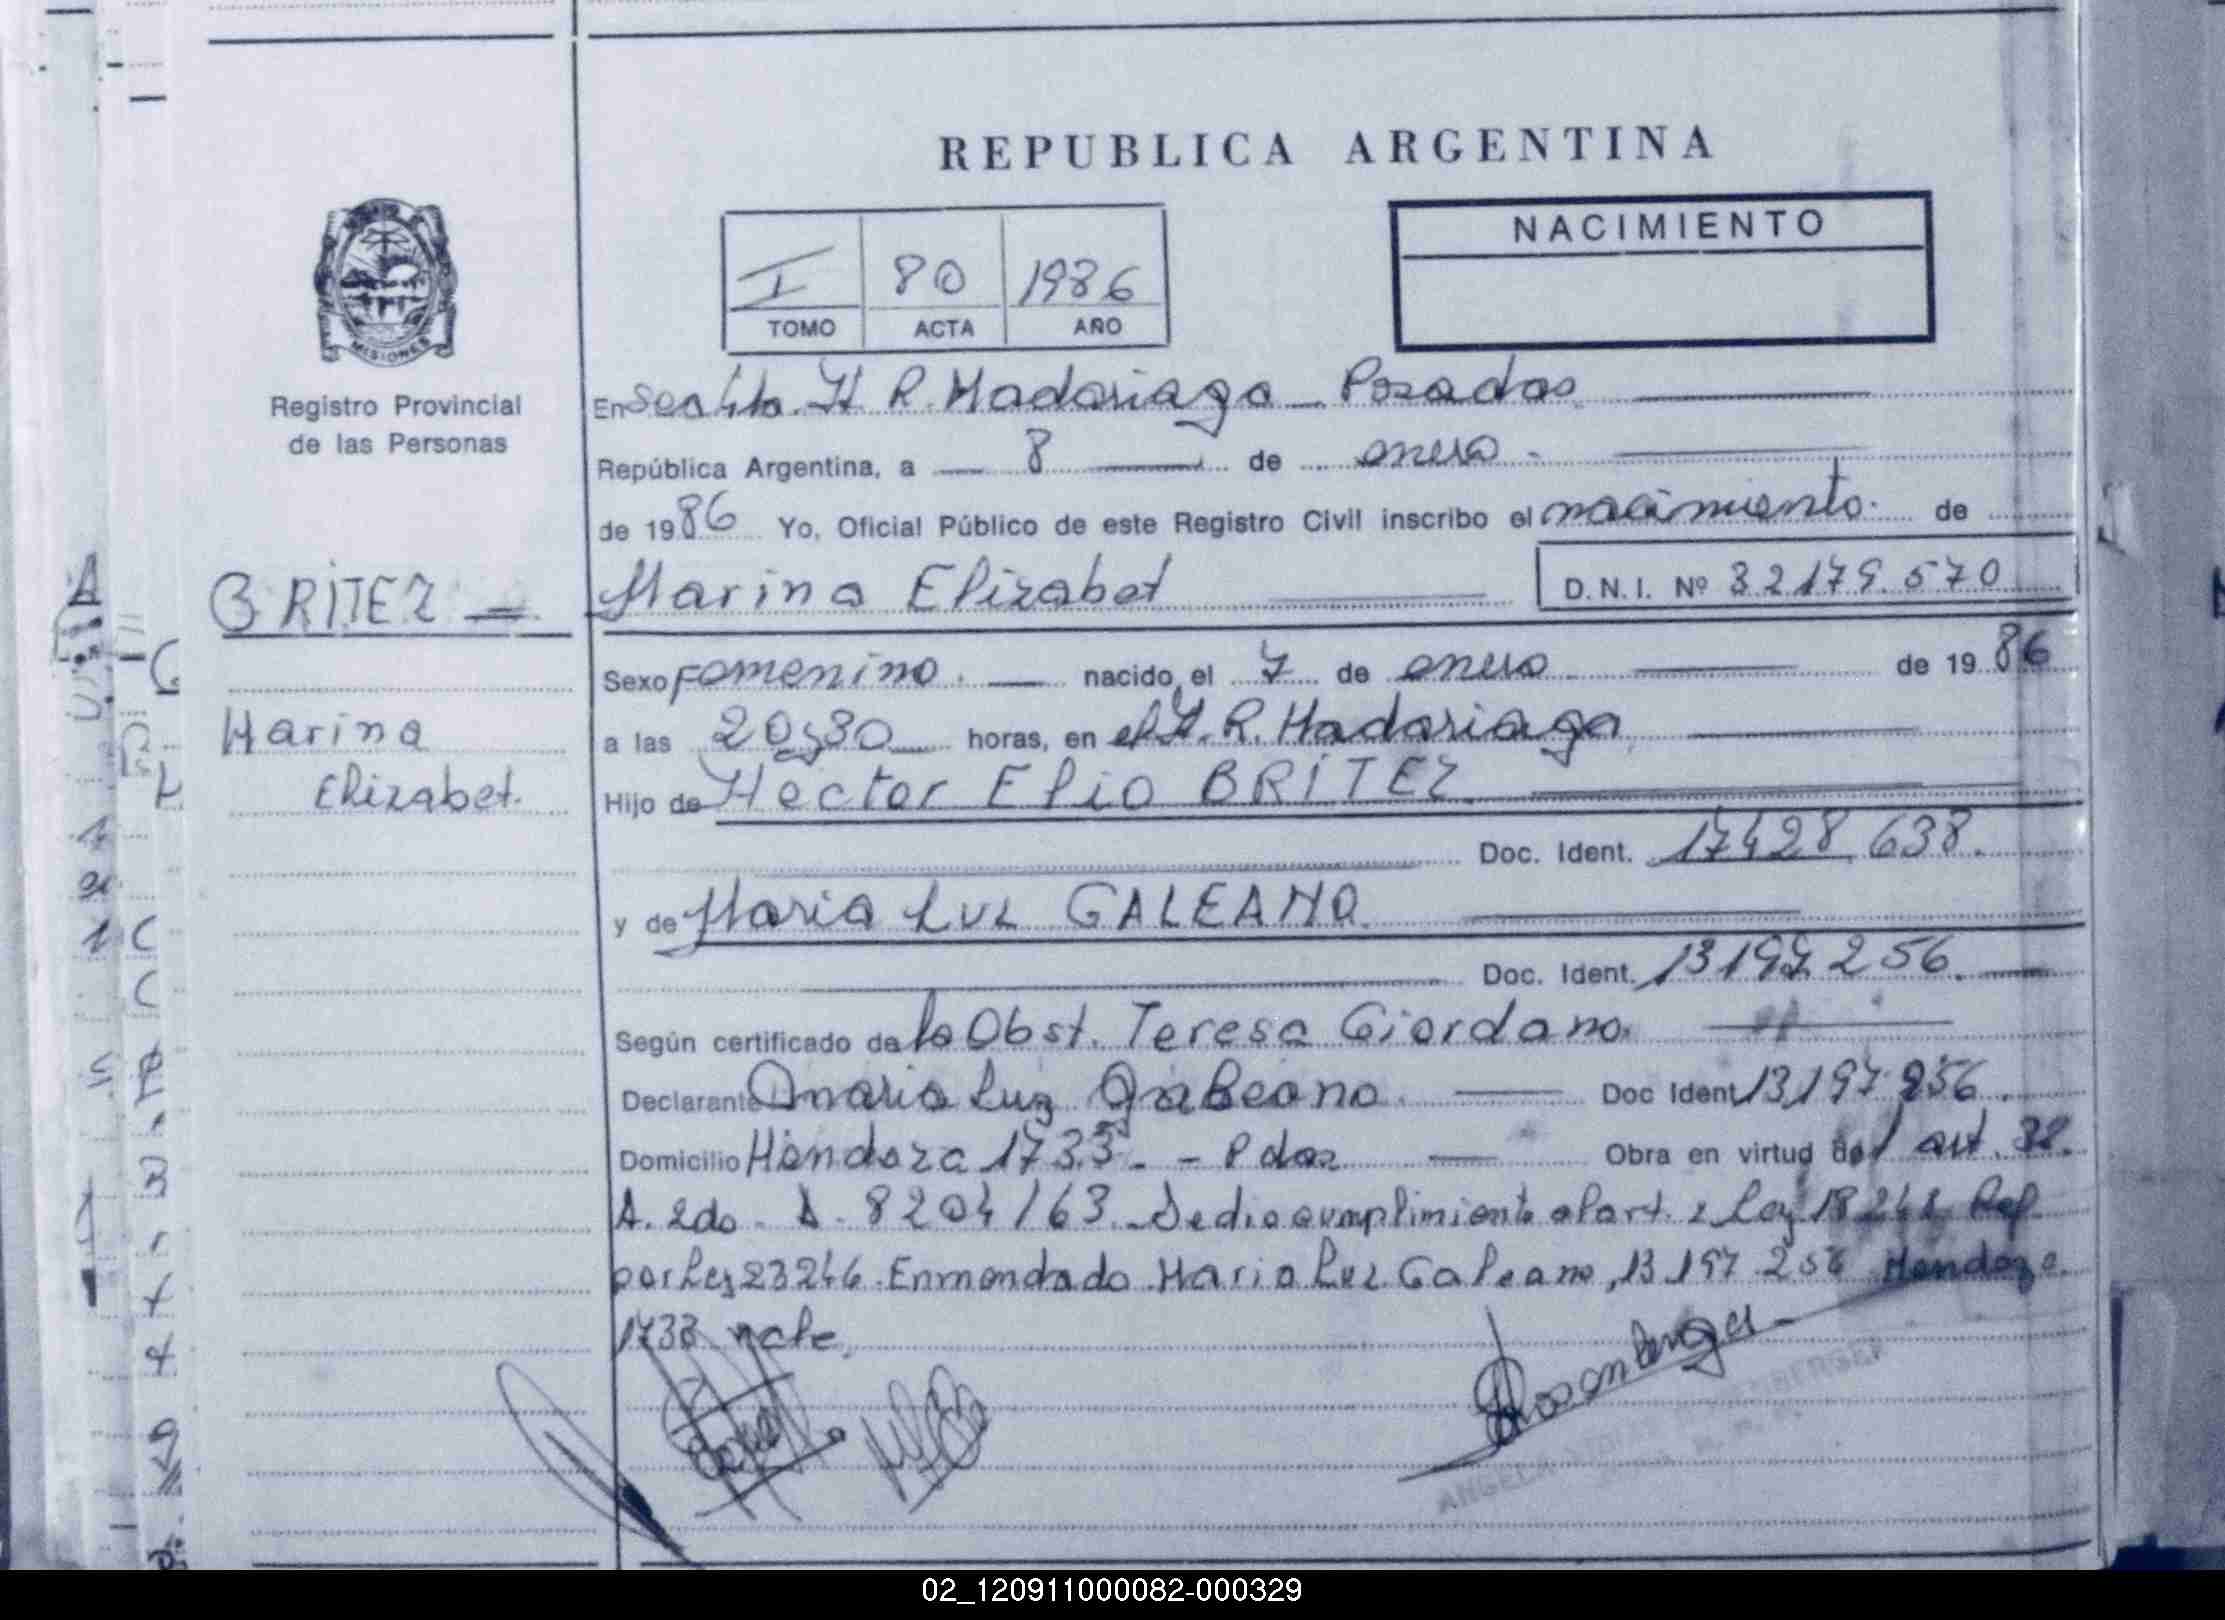 REPUBLICA ARGENTINA
NACIMIENTO
I 80 1986
TOMO ACTA AÑO
MISIONES
Registro Provincial
de las Personas
En Secc 4ta. H. R. Madariaga - Posadas.
República Argentina, a 8 de enero
de 1986 Yo, Oficial Público de este Registro Civil inscribo el nacimiento. de
BRITEZ
Marina Elizabet D.N.I. Nº 32179.570
Sexo Femenino. nacido el 7 de enero de 1986
Marina
a las 20,30 horas, en el H. R. Madariaga
Elizabet.
Hijo de Hector Elio BRITEZ.
Doc. Ident. 17428.638.
y de Maria Luz GALEANO.
Doc. Ident. 13197256.
Según certificado de la Obst. Teresa Giordano.
Declarante Maria Luz Galeano. Doc Ident 13,197.256.
Domicilio Mendoza 1733. - Pdas Obra en virtud del art. 38.
A. 2do. D. 8204/63. Se dio cumplimiento al art. 2 Ley 18248 Ref.
por Ley 23246. Enmendado Maria Luz Galeano, 13197256 Mendoza
1733 vale.
Rosenberger
ANGELA
02_120911000082-000329